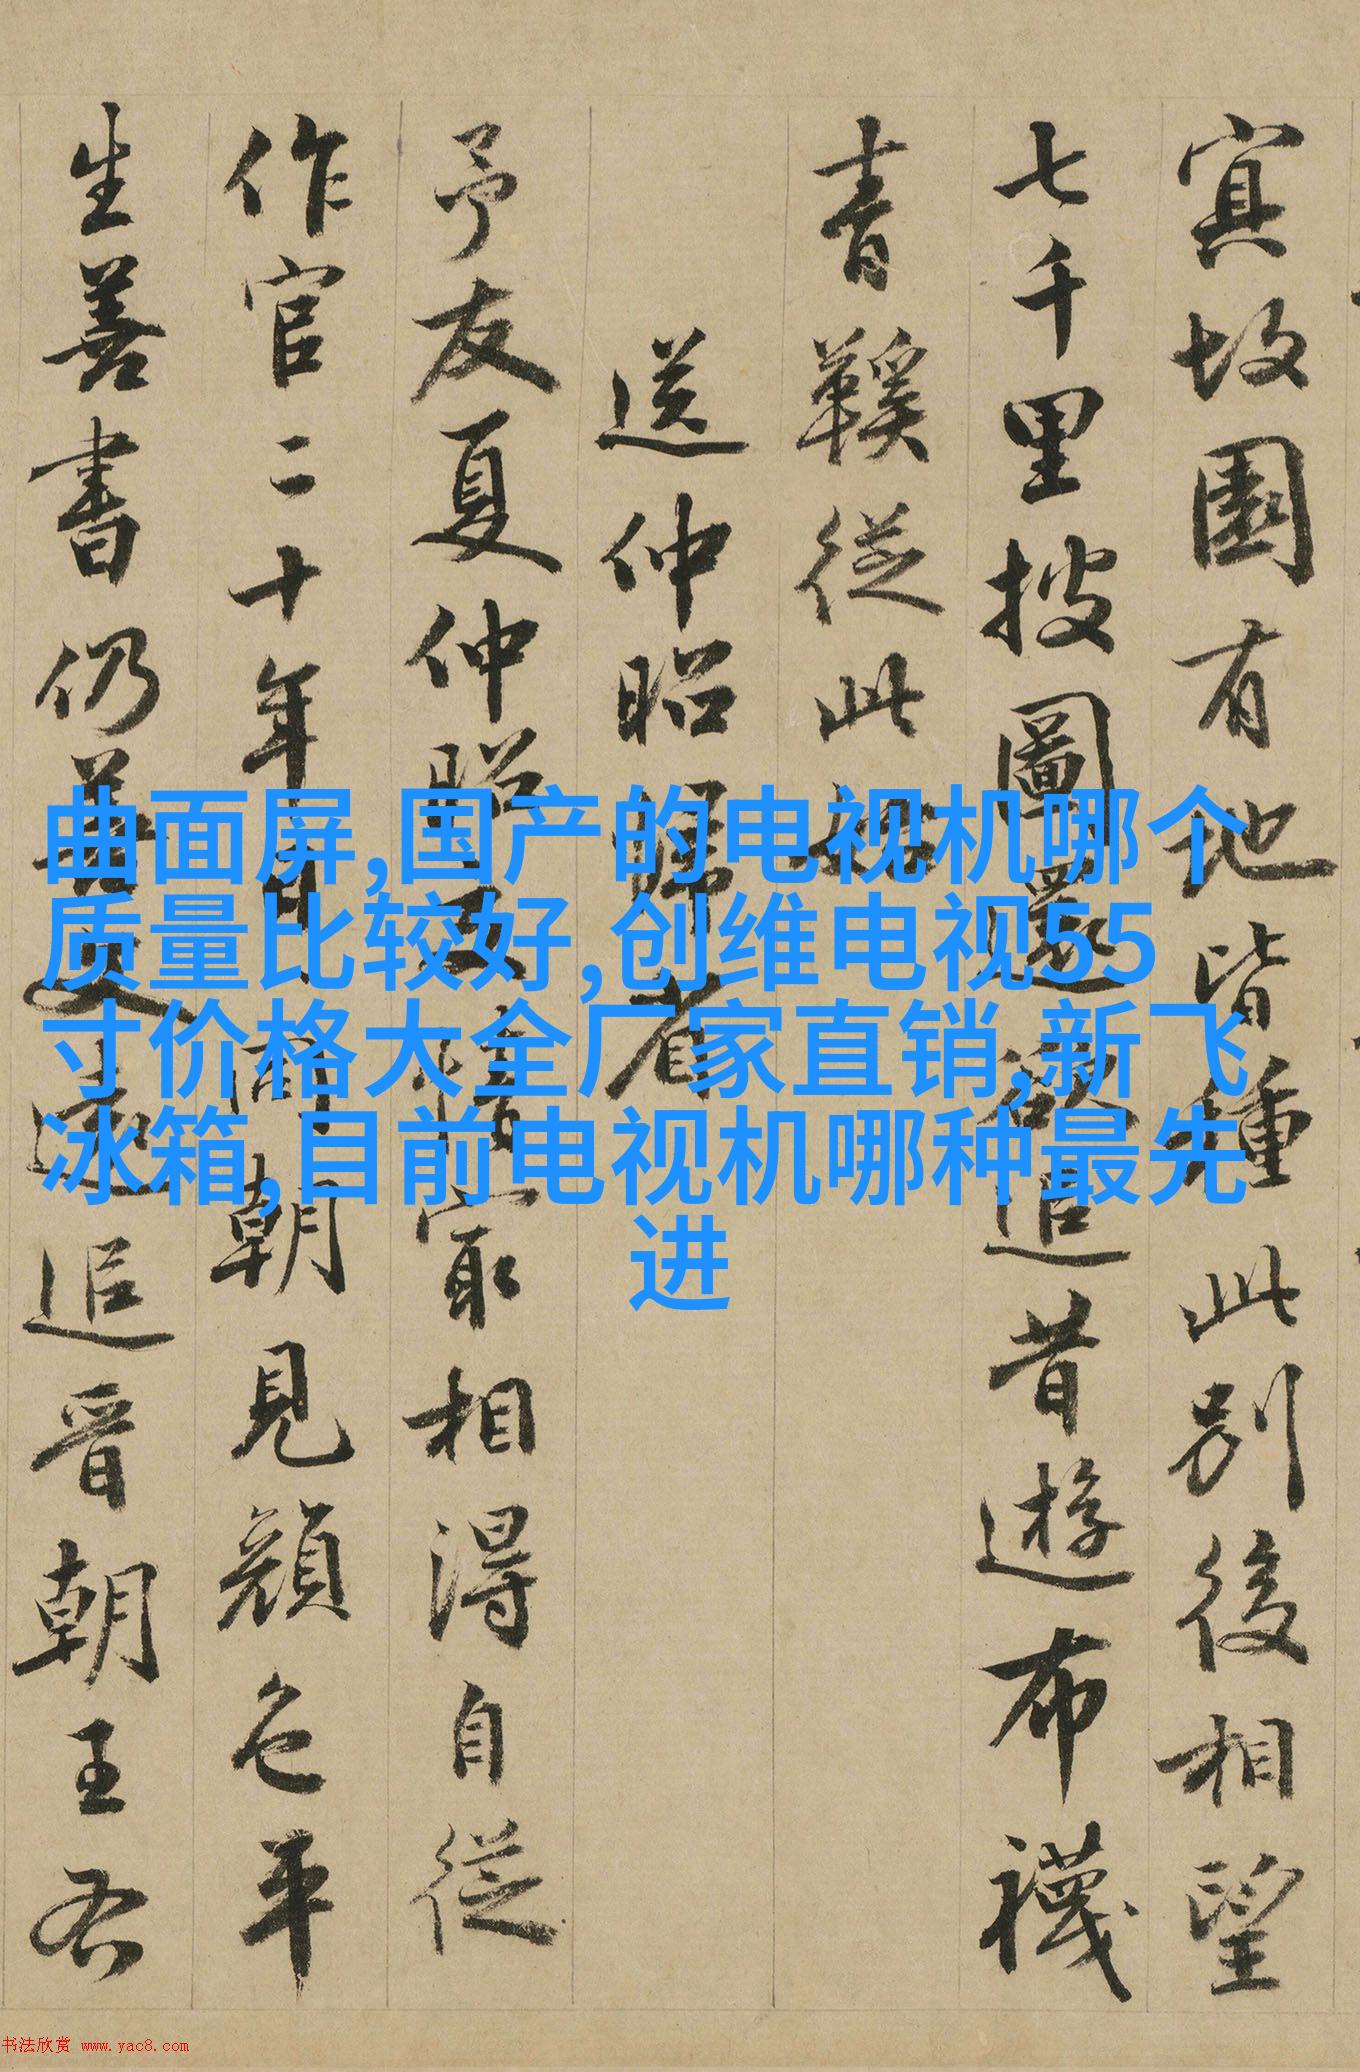 寘故園有地皆種此別後相望
七千里披圖還欲追昔遊布襪
青鞵從此
送仲昭歸省
予友夏仲昭及僚寀相得自從
作官二十年日日內朝見顏色平
生善書仍善史遠追晉朝王右
曲面屏,国产的电视机哪个
质量比较好,创维电视55
寸价格大全厂家直销,新飞
冰箱,目前电视机哪种最先
进
书法欣赏 www.yac8.com